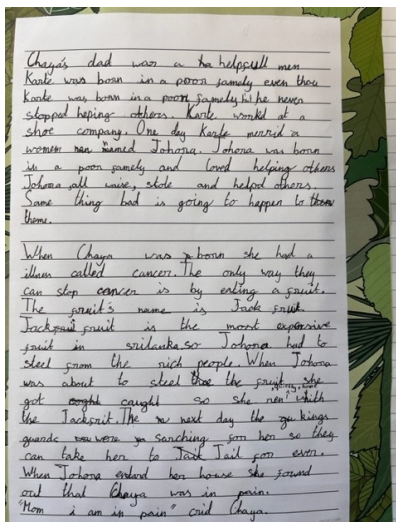 Chaya's dad was a helpfull men
Karle was born in a poor famely even thou
Karle was born in a poor famely he never
stopped heping others. Karle workd at a
shoe company. One day Karle merrid a
women named Johora. Johora was born
in a poor famely and loved helping others
Johora all waise, stole and helpd others.
Some thing bad is going to happen to
theme.
When Chaya was born she had a
illnes called cancer. The only way they
can stop cancer is by eating a fruit.
The fruit's name is Jack fruit.
Jackfruit is the most expensive
fruit in srilanka so Johora had to
steel from the rich people. When Johora
was about to steel the fruit, she
got caught so she ren whith
the Jackfrit. The next day the kings
guards were sanching for her so they
can take her to Jail for ever.
When Johora enterd her house she found
out that Chaya was in pain.
"Mom i am in pain" crid Chaya.